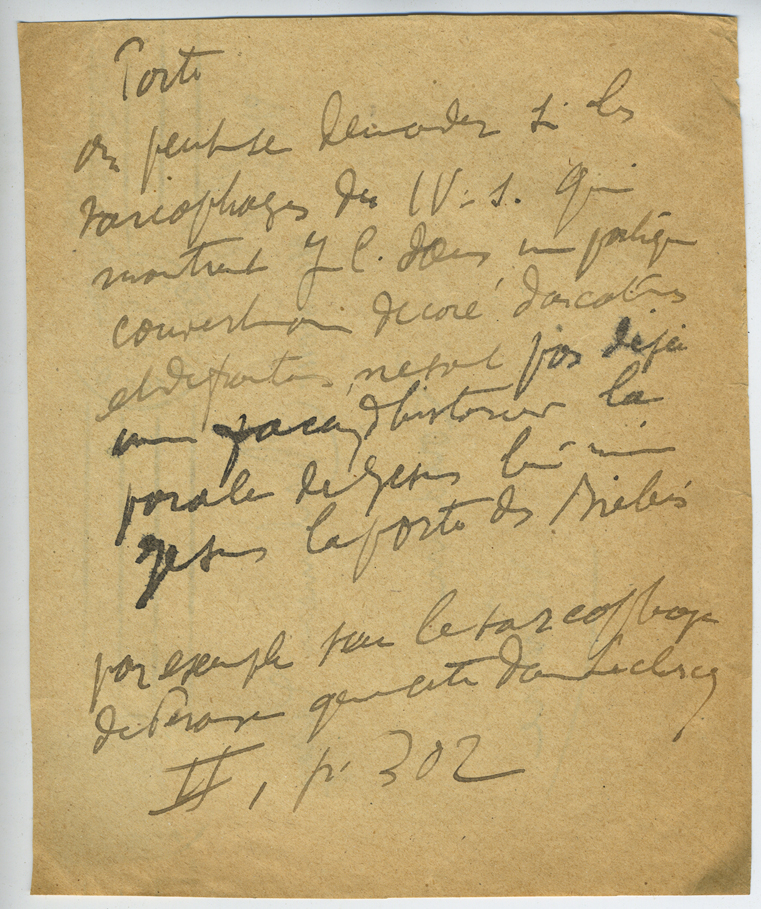 Porte
on peut se demander si les
sarcophages du IV. s. qui
montrent J C. dans un portique
couvert decoré d'arcatures
et de frontons, ne sont pas déjà
une façon d'historier la
parole de Jesus lui même
Jesus la porte des Brebis
par exemple sur le sarcophage
de Perouse que cite dom Leclercq
II, p. 302